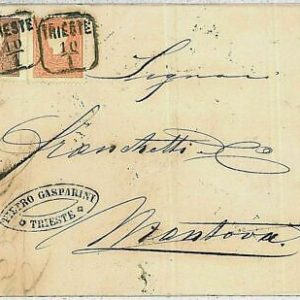 TRIESTE
10
1
TRIESTE
10
1
Signor
Franchetti & C
PIETRO GASPARINI
TRIESTE
Mantova